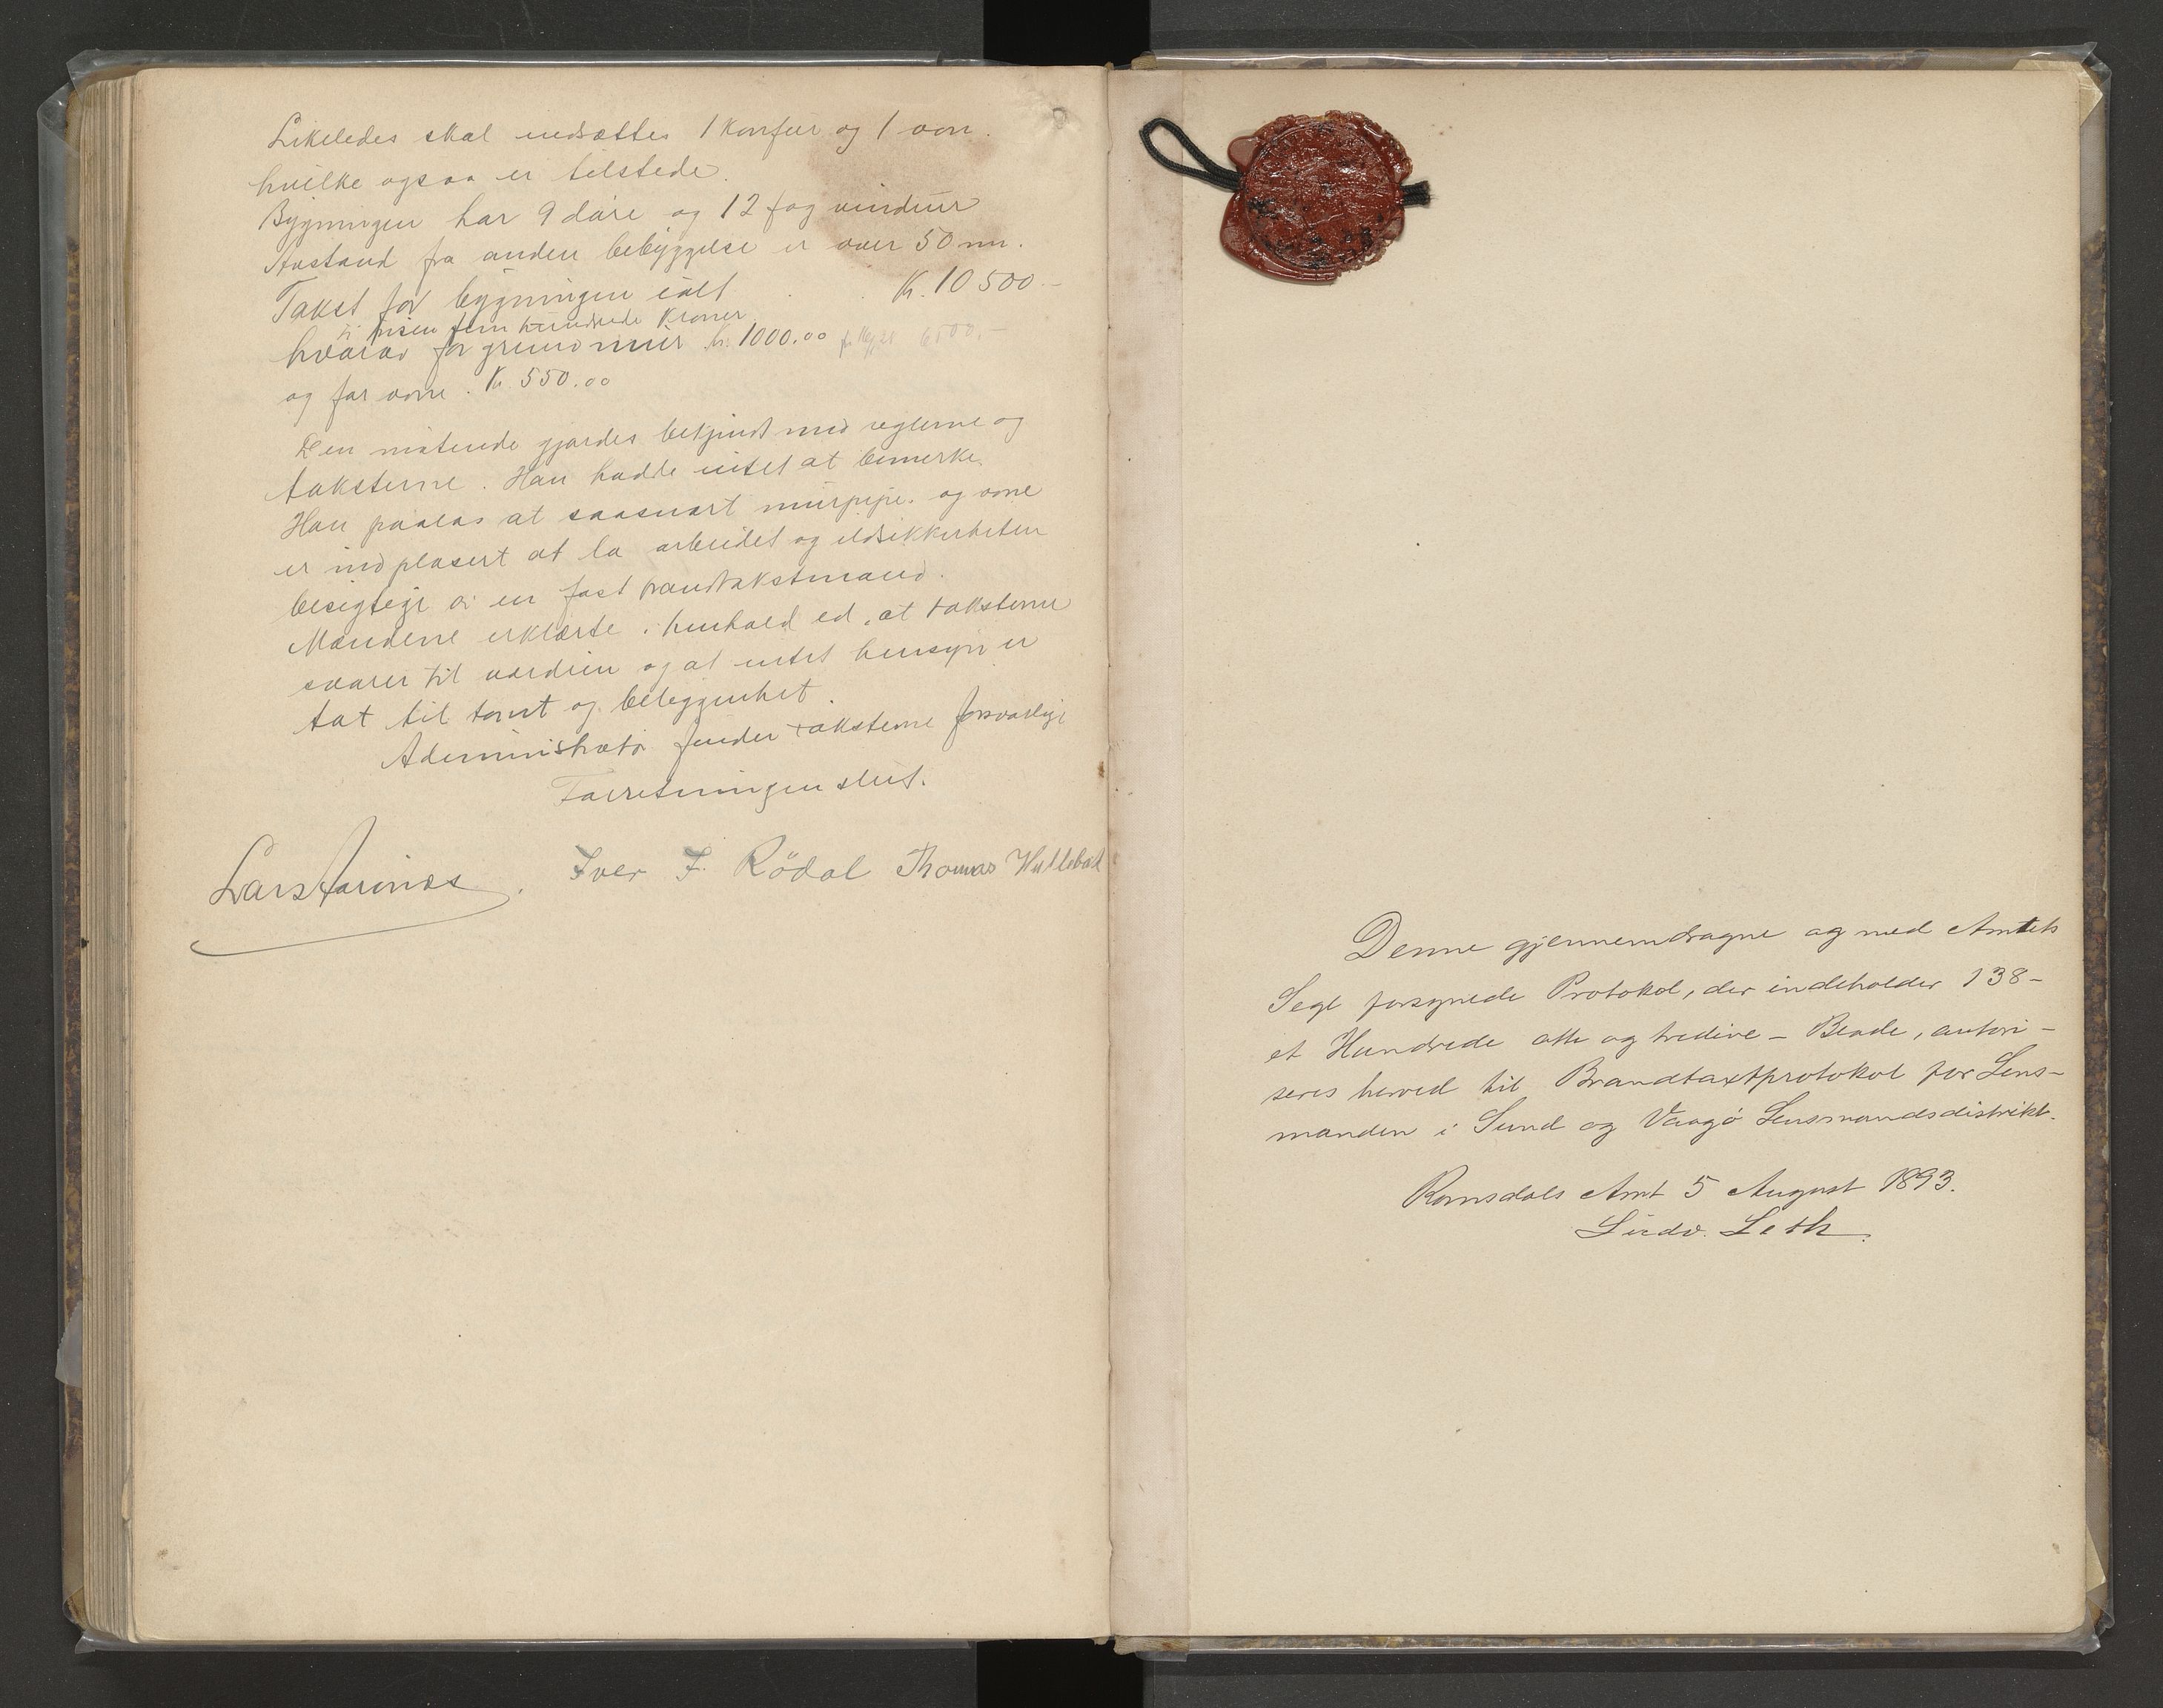 Likeledes skal indsættes 1 komfur og 1 ovn.
hvilke ogsaa er tilstede.
Bygningen har 9 döre og 12 fag vinduer
Avstand fra anden bebyggelse er over 50 m.
Takst for bygningen ialt . . Kr. 10 500.-
ti tusen fem hundrede Kroner
hvorav for grundmur kr. 1000.00 6500.-
og for ovne . Kr. 550.00
Den mötende gjordes bekjendt med reglerne og
taksterne. Han hadde intet at bemerke.
Han paalas at saasnart murpipe og ovne
er indplasert at la arbeidet og ildsikkerheten
besigtige av en fast brandtakstmand.
Mændene erklærte i henhold ed, at taksterne
svarer til værdien og at intet hensyn er
tat til tomt og beliggenhet.
Administrator finder taksterne forsvarlige
Forretningen slut.
Lars Aarönæs. Iver I. Rödal Thomas Huttebak
Denne gjennemdragne og med Amtets
Segl forsynede Protokol, der indeholder 138-
et Hundrede otte og tredive - Blade, autori-
seres herved til Brandtaxtprotokol for Lens-
manden i Sund og Vaagö Lensmandsdistrikt.
Romsdals Amt 5 August 1893.
Ludv. Leth.